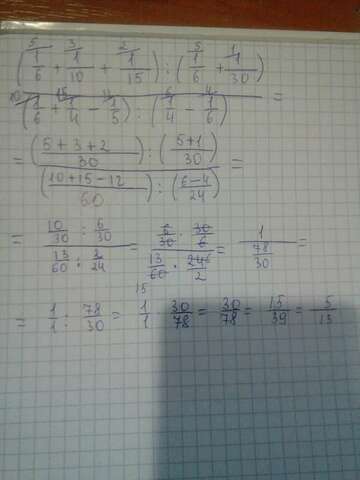 (5 1/6 + 3 1/10 + 2 1/15) : (5 1/6 + 1 1/30)
(10 1/6 + 15 1/4 - 1/5) : (6 1/4 - 4 1/6) =
= (5+3+2/30) : (5+1/30)
(10+15-12/60) : (6-4/24) =
= 10/30 : 6/30
13/60 : 2/24 = 6/30 · 30/6
13/60 · 246/2 = 1
78/30 =
= 1/1 : 78/30 = 1/1 · 30/78 = 30/78 = 15/39 = 5/13